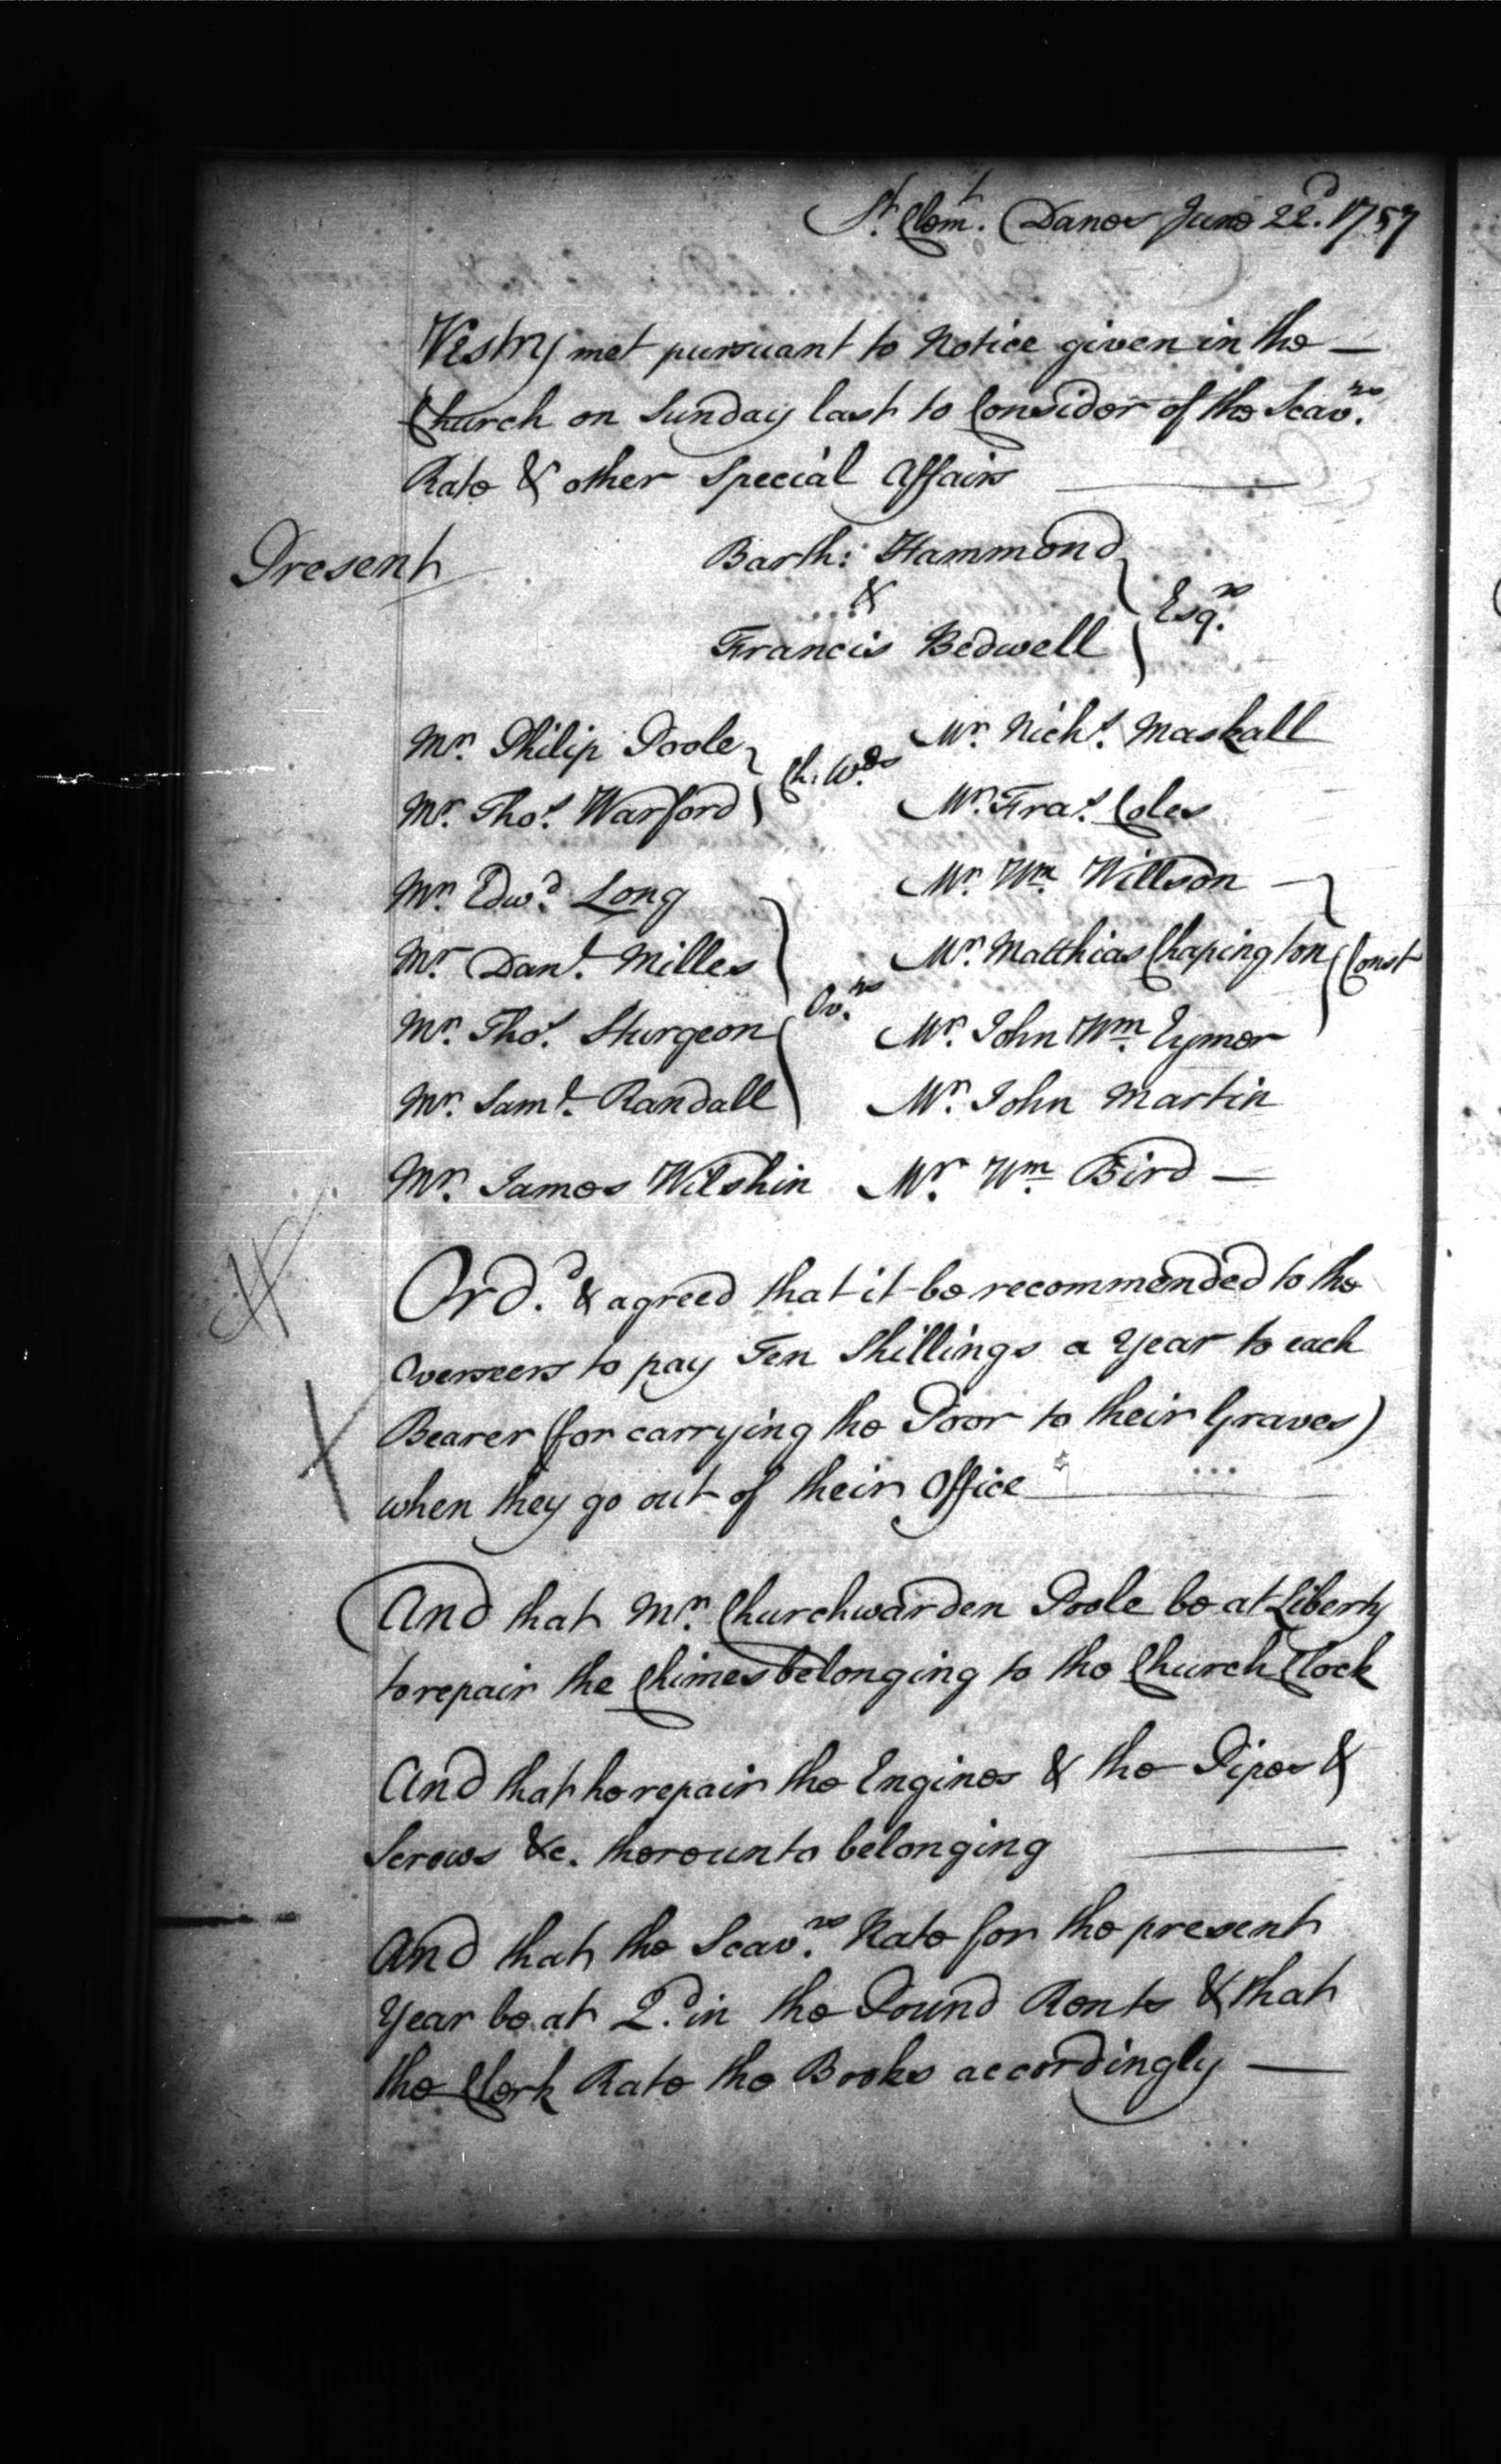 St. Clemt. Danes June 22d. 1757
Vestry met pursuant to Notice given in the —
Church on Sunday last to Consider of the Scavrs.
Rate & other Special Affairs
Present
Barth: Hammond
&
Francis Bedwell
Esqrs.
Mr. Philip Poole
Mr. Thos. Warford
Ch. Wds.
Mr. Edwd. Long
Mr. Danl. Milles
Mr. Thos. Sturgeon
Mr. Saml. Randall
Ovrs.
Mr. James Wilshin
Mr. Nichs. Maskall
Mr. Fras. Coles
Mr. Wm. Willson —
Mr. Matthias Chapington
Mr. John Wm. Eymer
Const
Mr. John Martin
Mr. Wm. Bird —
Ord.d & agreed that it be recommended to the
Overseers to pay Ten Shillings a Year to each
Bearer (for carrying the Poor to their Graves)
when they go out of their Office
And that Mr. Churchwarden Poole be at Liberty
to repair the Chimes belonging to the Church Clock
And that he repair the Engines & the Pipes &
Screws &c. thereunto belonging
And that the Scavrs. Rate for the present
Year be at 2d. in the Pound Rents & that
the Clerk Rate the Books accordingly —